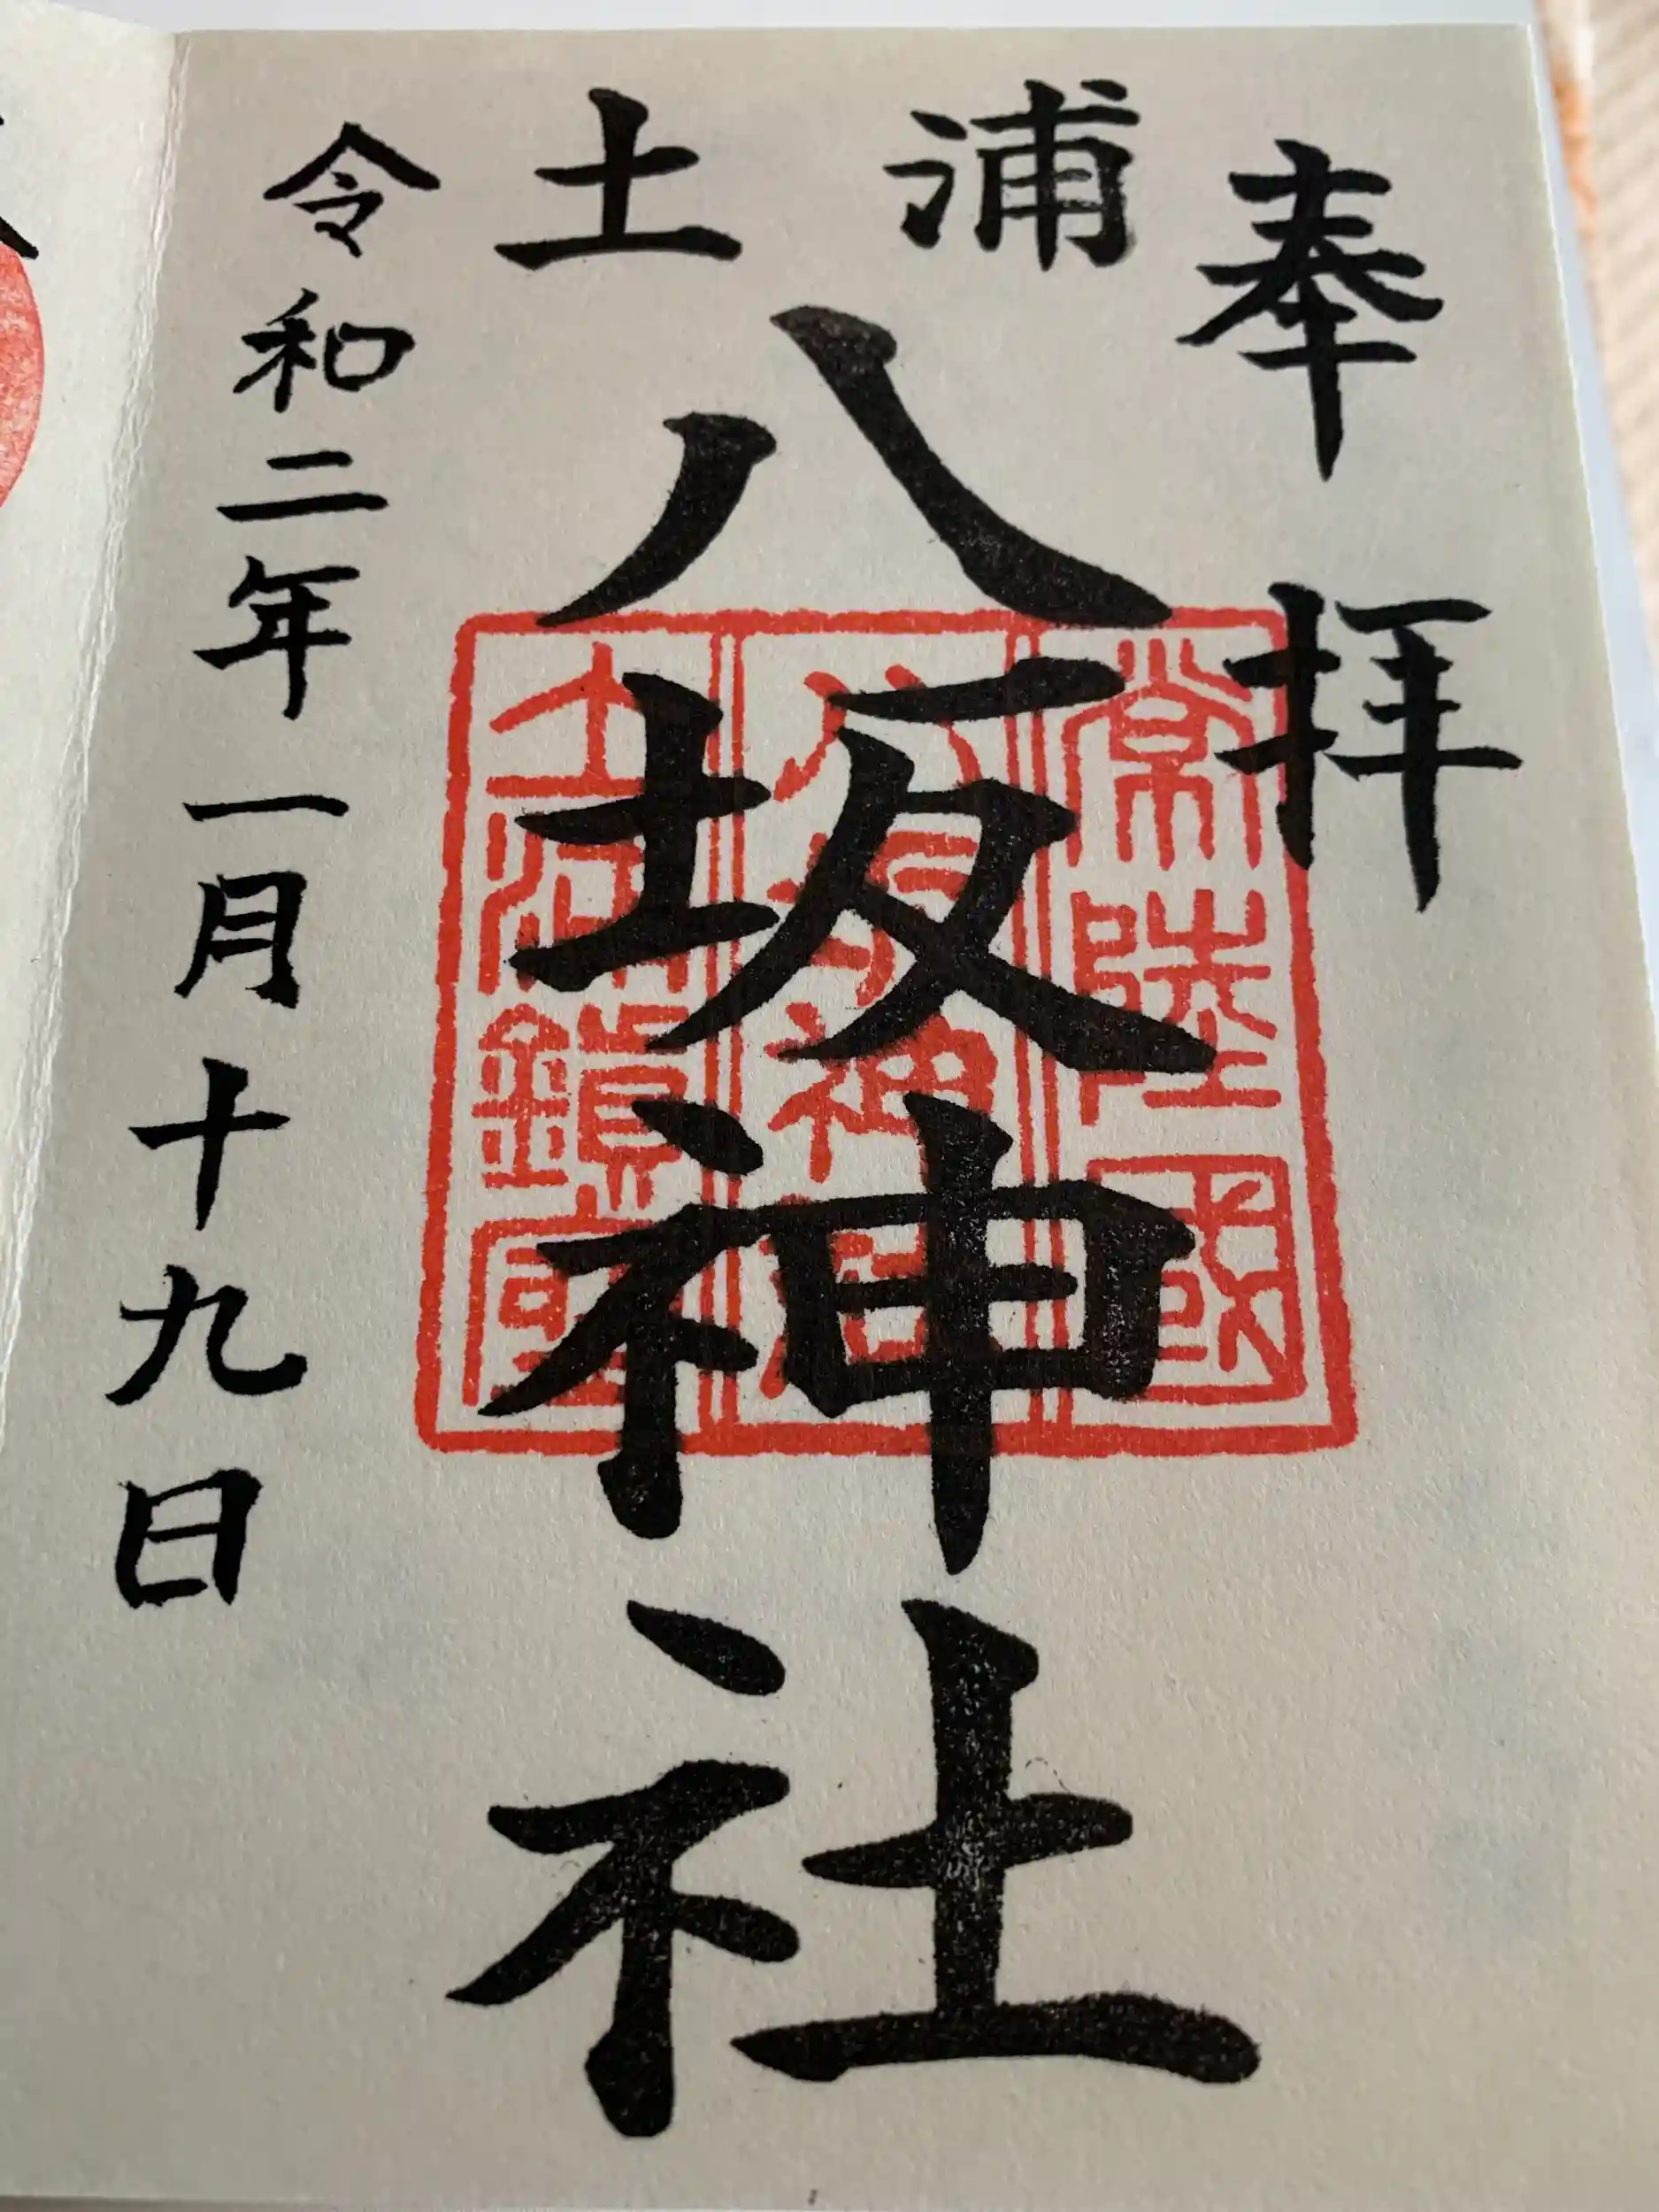 奉拝
土浦
八坂神社
令和二年一月十九日
常陸國
八坂神
土浦鎮